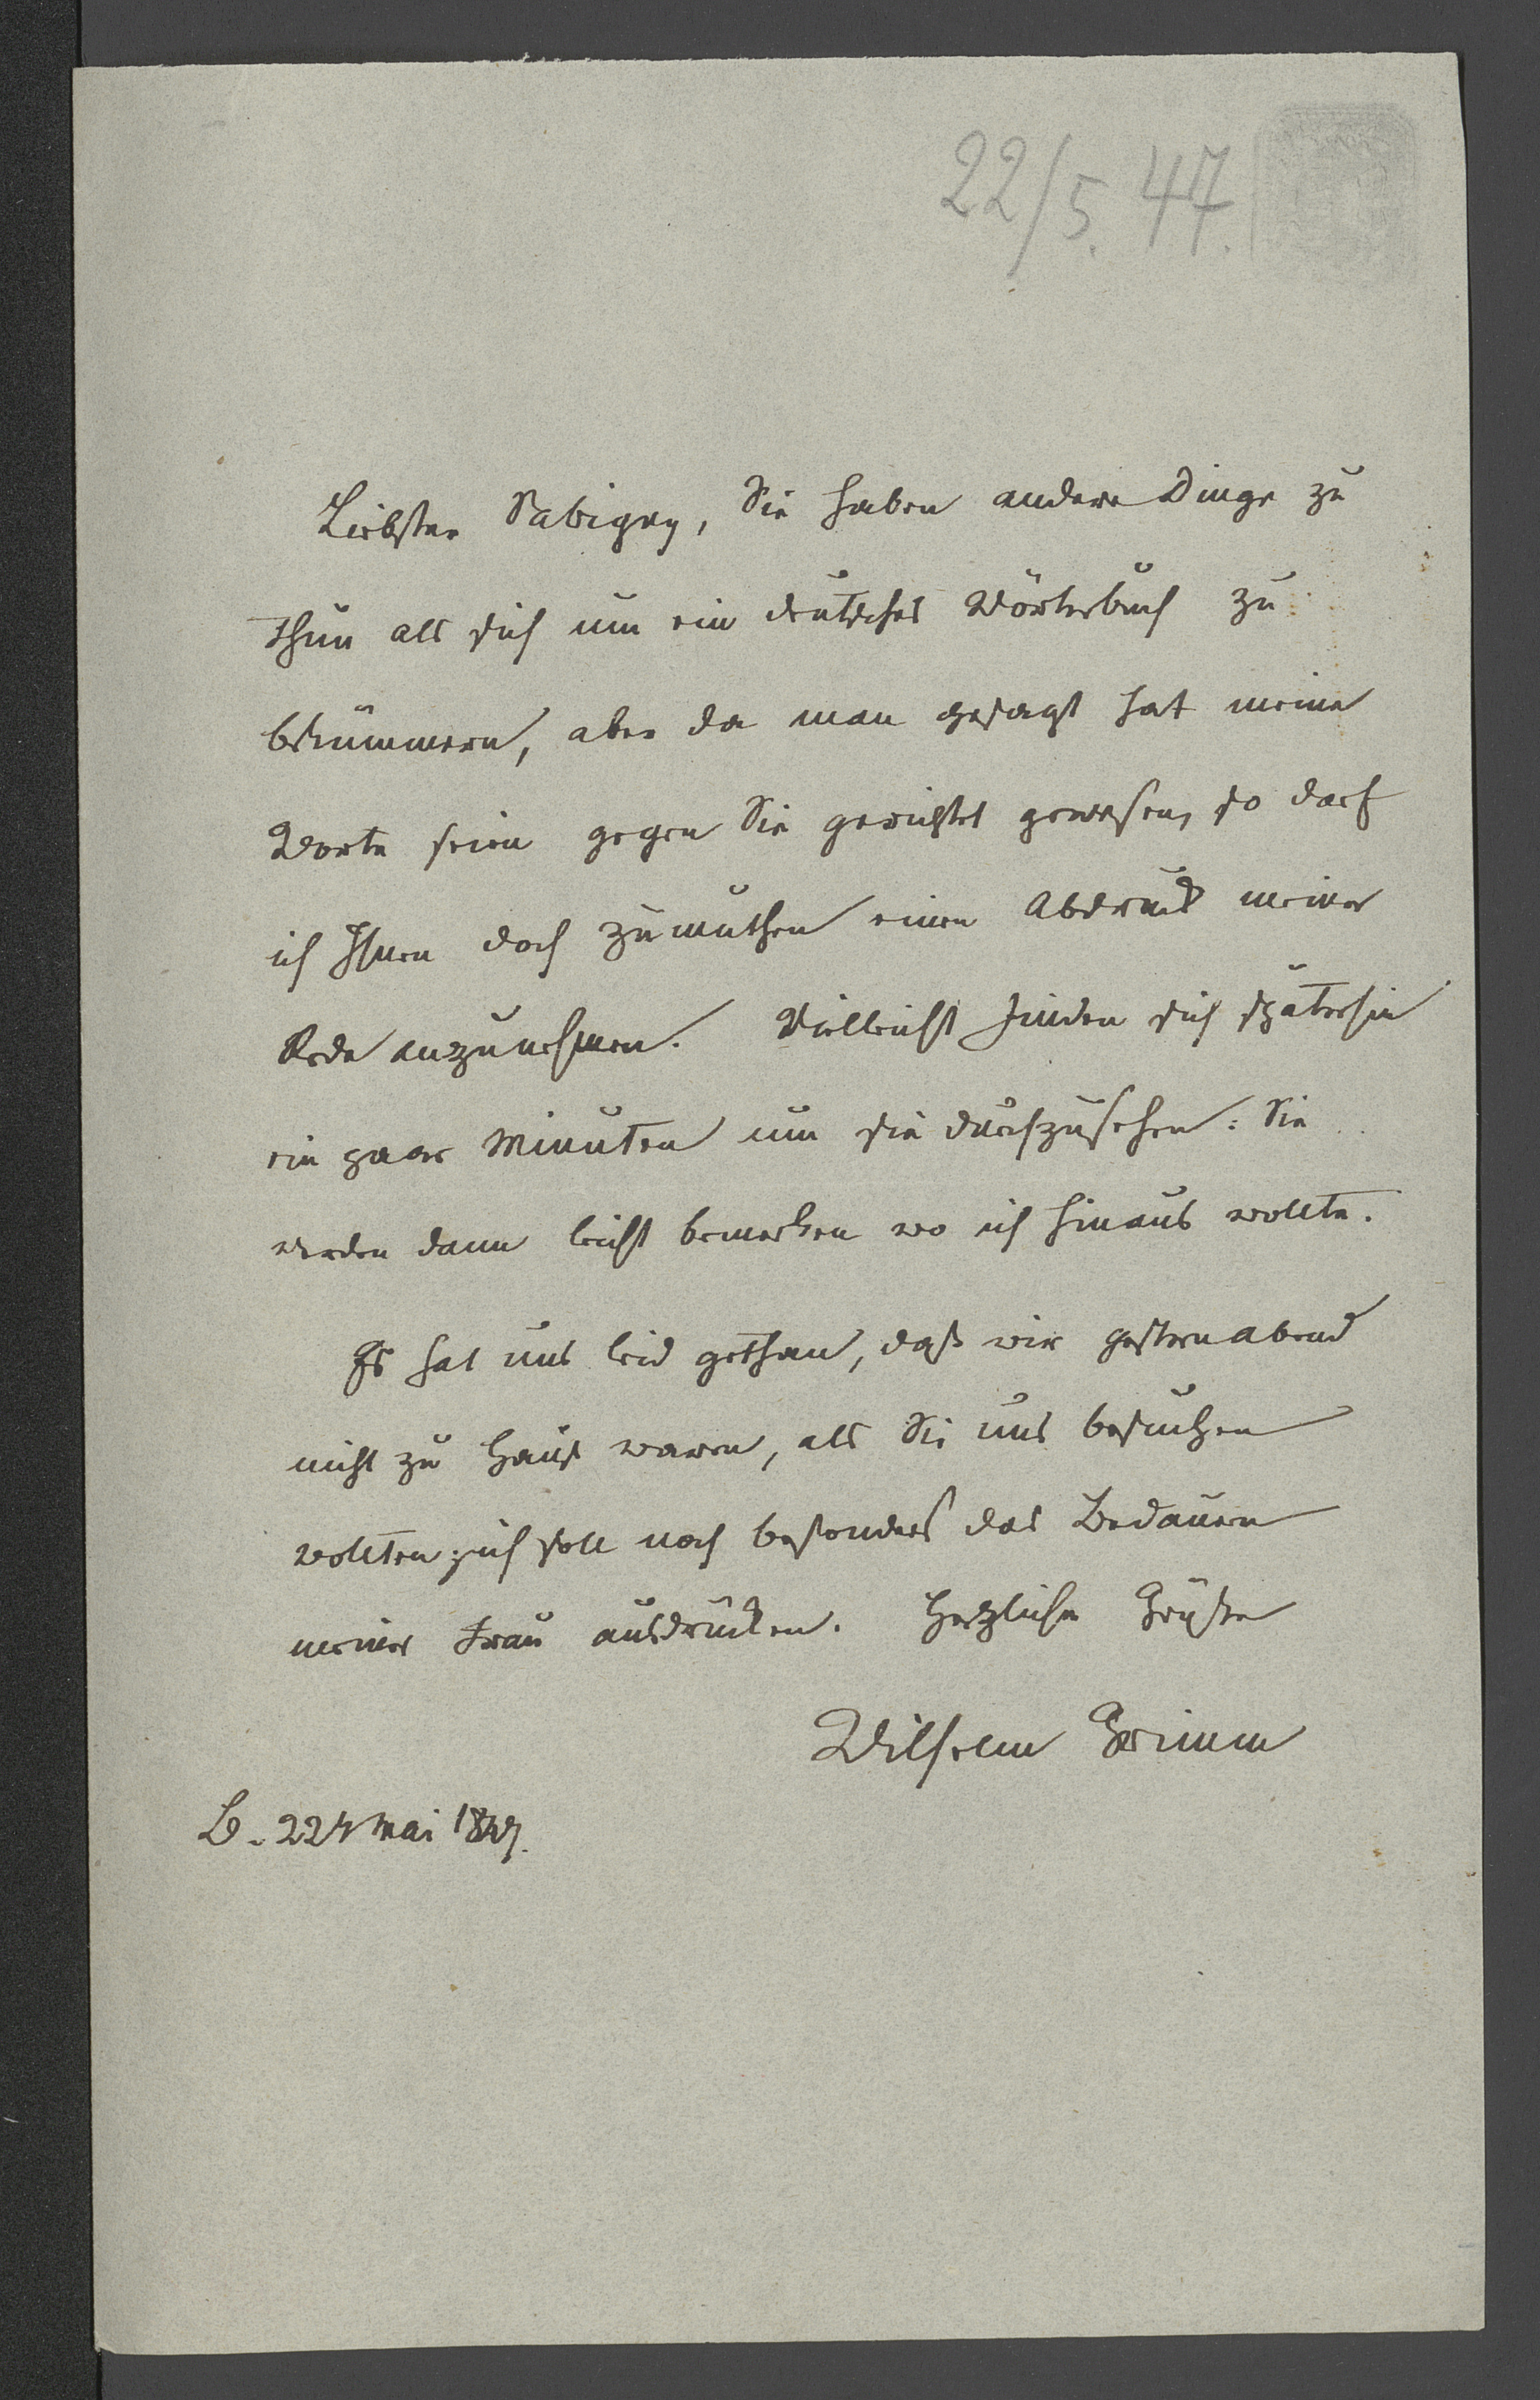 22/5. 47.
Liebster Savigny, Sie haben andere Dinge zu
thun als sich um ein deutsches Wörterbuch zu
bekümmern, aber da man gesagt hat meine
Worte seien gegen Sie gerichtet gewesen, so darf
ich Ihnen doch zumuthen einen Abdruck meiner
Rede anzunehmen. Vielleicht finden sich späterhin
ein paar Minuten um sie durchzusehen: Sie
werden dann leicht bemerken wo ich hinaus wollte.
Es hat uns leid gethan, daß wir gestern abend
nicht zu Haus waren, als Sie uns besuchen
wollten; ich soll noch besonders das Bedauern
meiner Frau ausdrücken. Herzliche Grüße
Wilhelm Grimm
B. 22t Mai 1847.